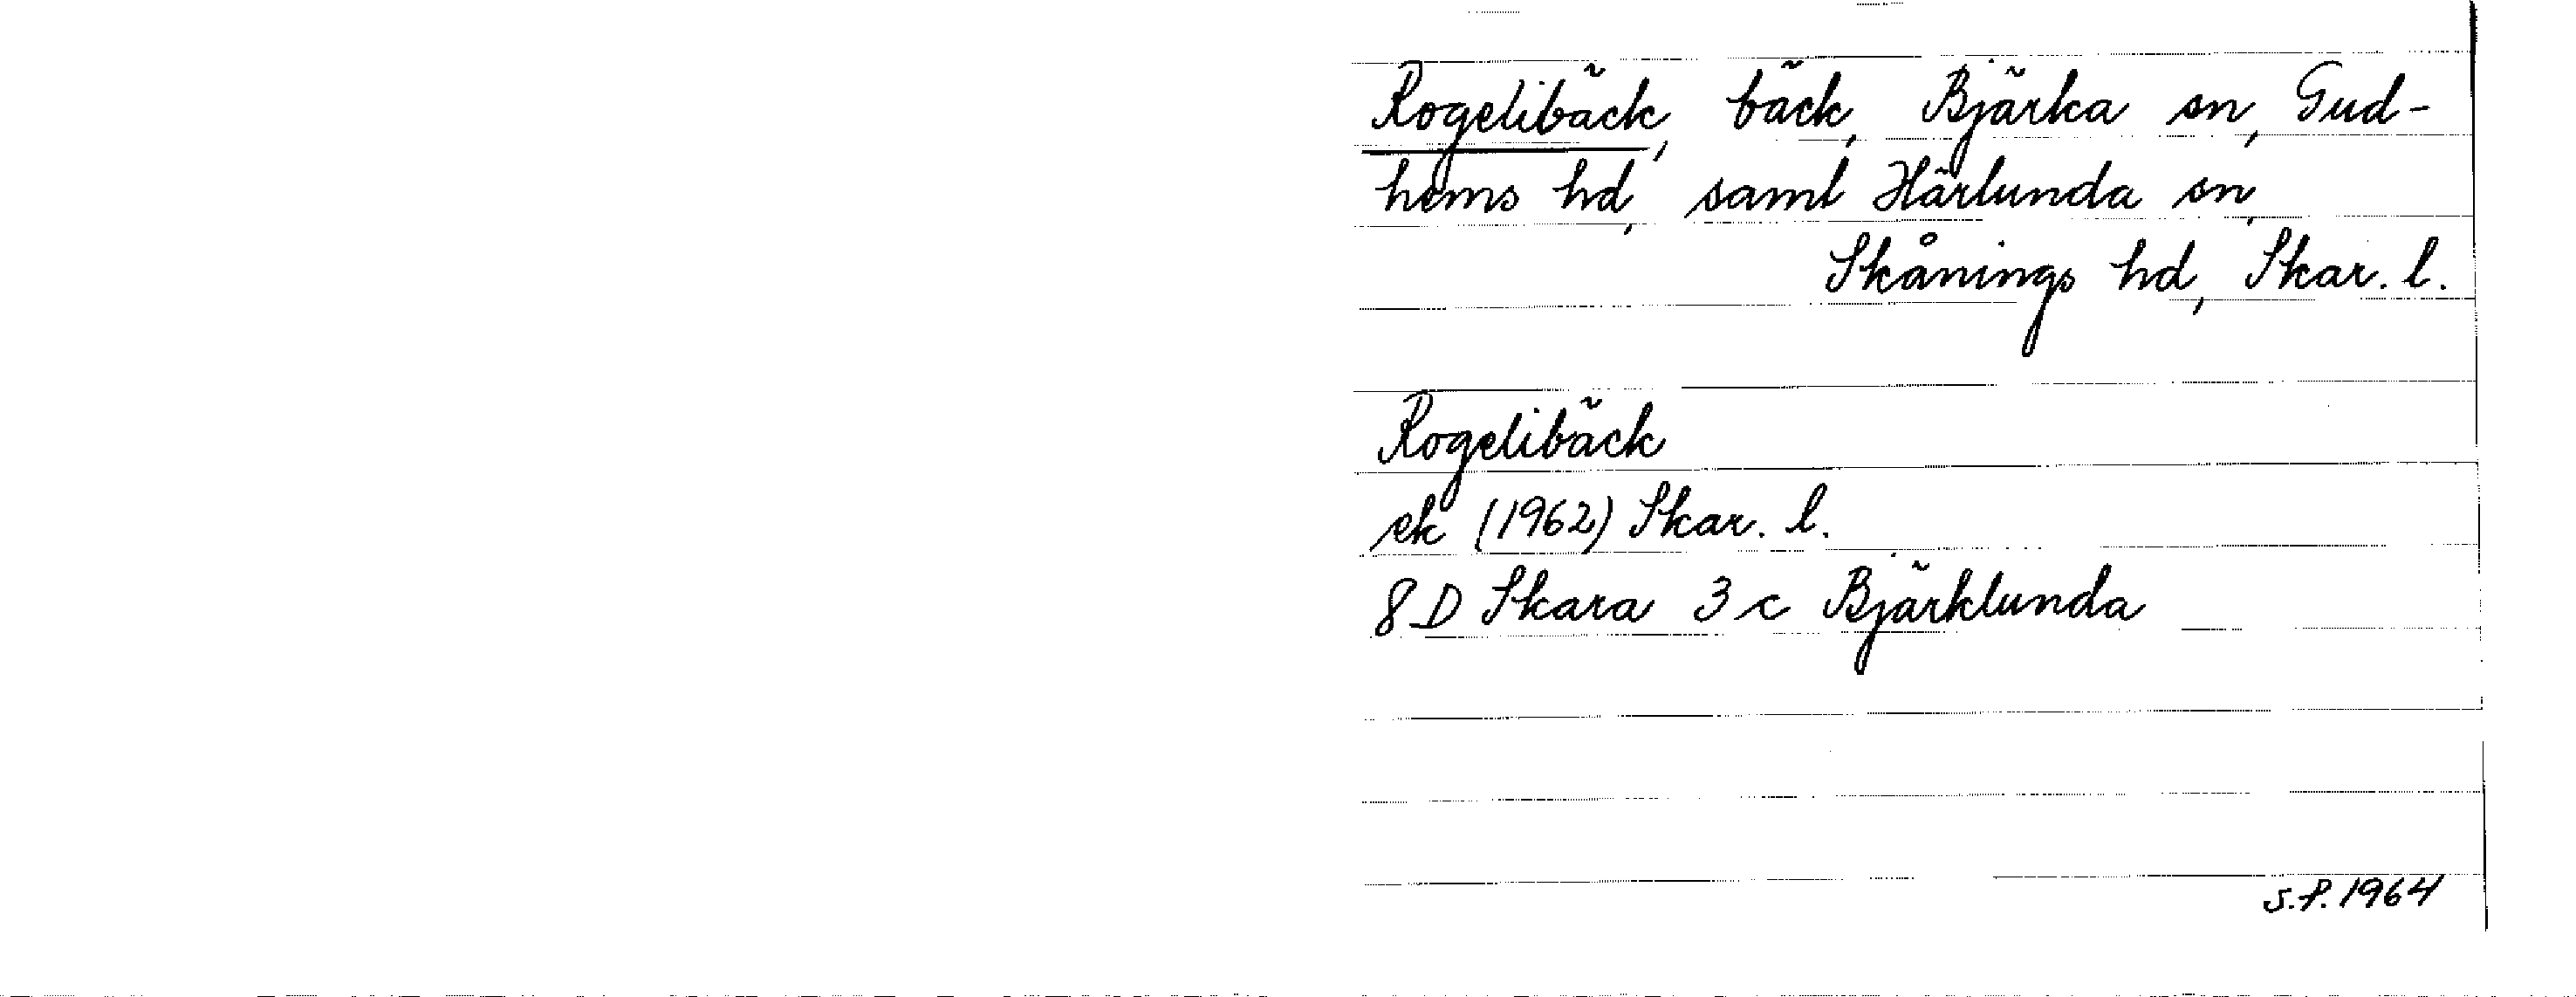 Rogelibäck, bäck, Bjärka sn, Gud-
hems hd, samt Härlunda sn,
Skånings hd, Skar. l.
Rogelibäck
ek (1962) Skar. l.
8 D Skara 3 c Bjärklunda
S.P. 1964